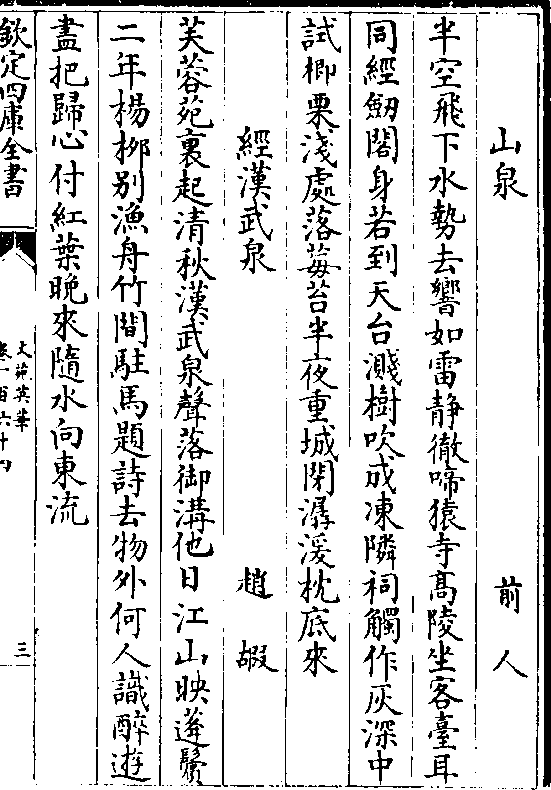 山泉　前人
半空飛下水勢去響如雷静徹啼猿寺髙陵坐客臺耳
同經劒閣身若到天台濺樹吹成凍隣祠觸作灰深中
試楖栗淺處落莓苔半夜重城閉潺湲枕底來
經漢武泉　趙嘏
芙蓉苑裏起清秋漢武泉聲落御溝他日江山映蓬鬢
二年楊栁别漁舟竹間駐馬題詩去物外何人識醉遊
盡把歸心付紅葉晚來隨水向東流
欽定四庫全書
文苑英華
卷一百六十四
三